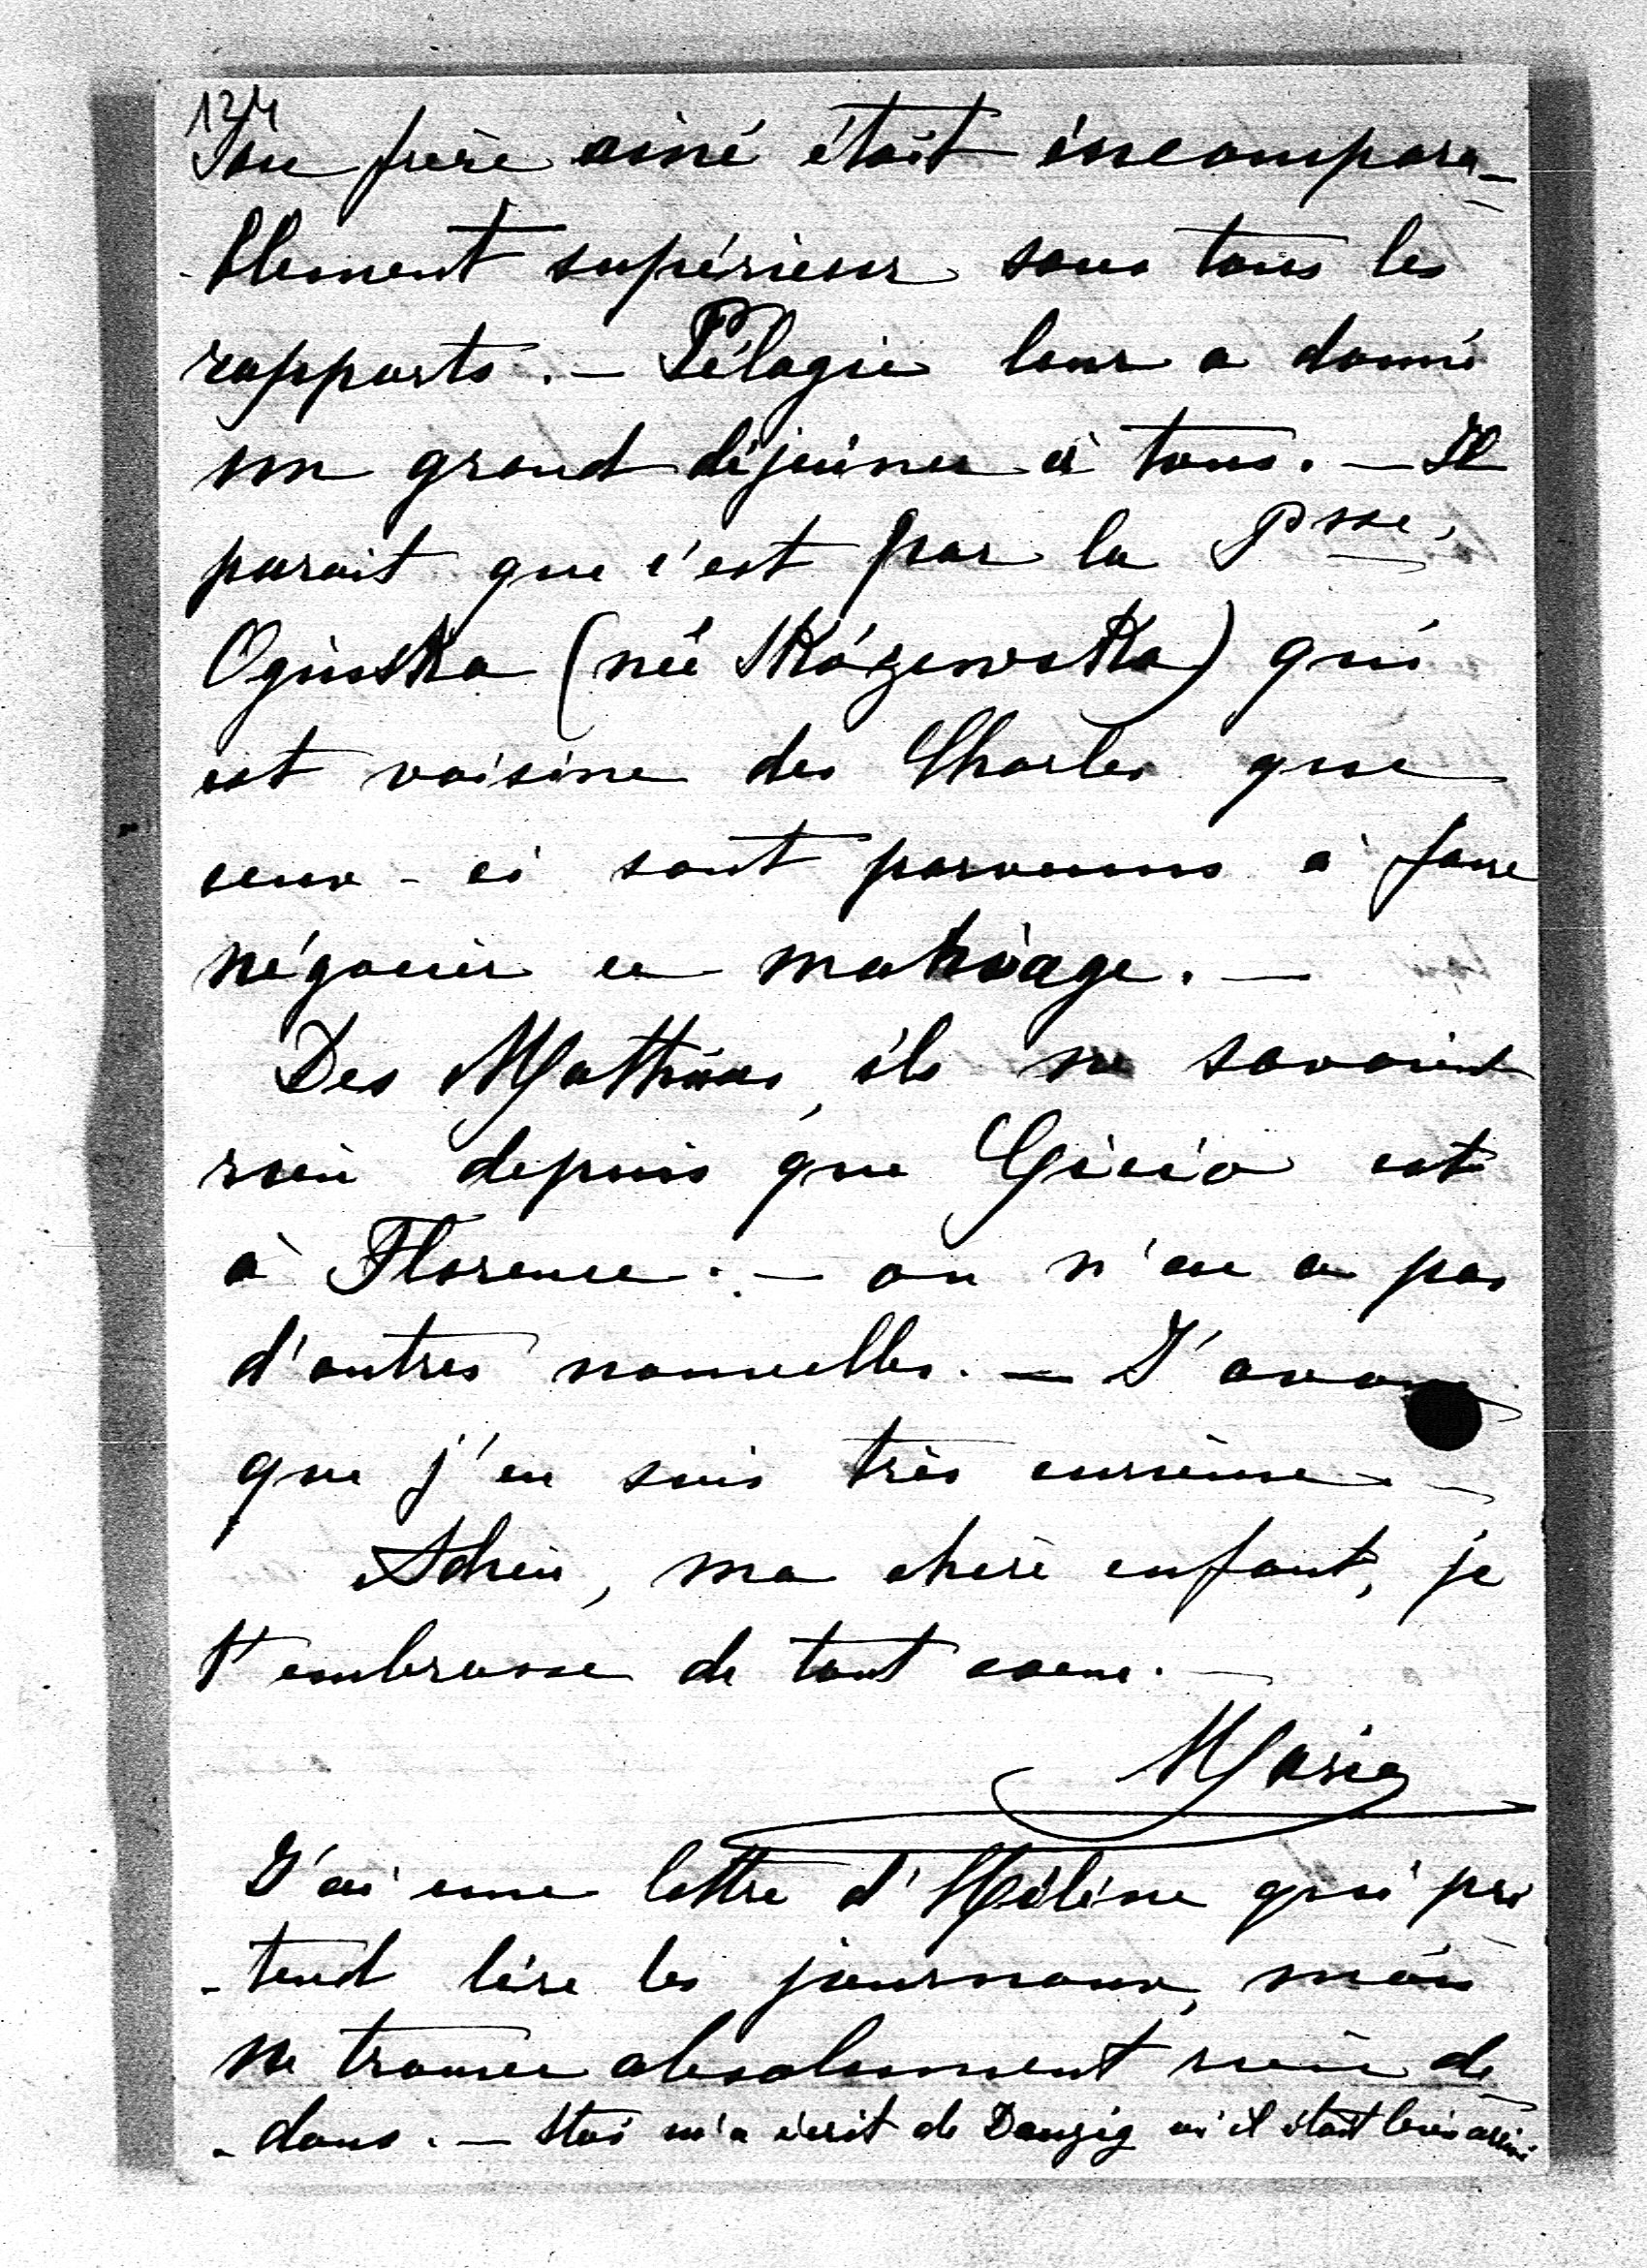 124
Son frère ainé était incompara-
-blement supérieur sous tous les
rapports. — Pélagie leur a donné
un grand déjeuner à tous. — Il
parait que c'est par la Psse.
Oginska (née Skórzewska) qui
est voisine des Charles que
ceux-ci sont parvenus à faire
négocier ce mariage. —
Des Mathias, ils ne savaient
rien depuis que Gicio est
à Florence. — on n'en a pas
d'autres nouvelles. — J'avoue
que j'en suis très curieuse —
Adieu, ma chère enfant, je
t'embrasse de tout coeur. —
Marie
J'ai une lettre d'Hélène qui pré
-tend lire les journaux, mais
ne trouve absolument rien de-
-dans. — Stas m'a écrit de Danzig où il était bien arrivé